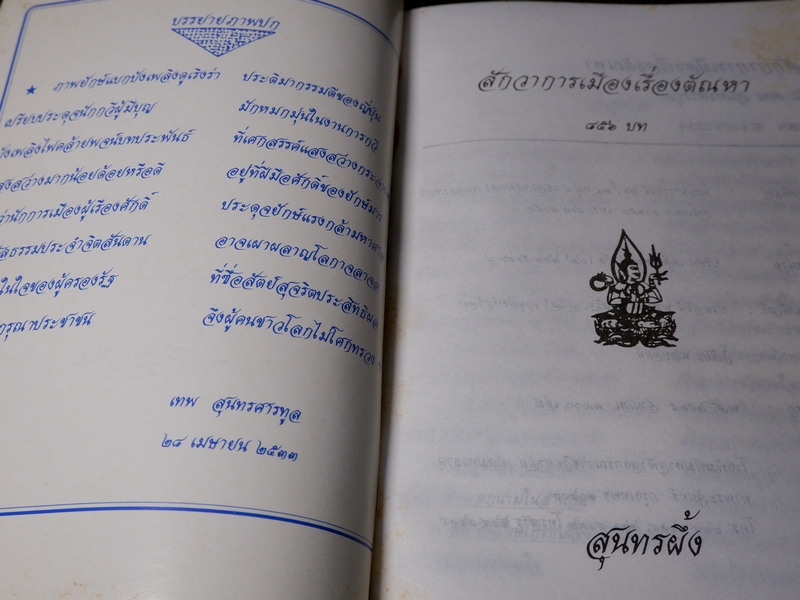 บรรยายภาพปก
★ ภาพยักษ์แบกบังเพลิงดูเริงร่า ประติมากรรมดีของญี่ปุ่น
เปรียบประดุจนักกวีผู้มีบุญ มักหมกมุ่นในงานการกวี
บังเพลิงไฟคล้ายพจน์บทประพันธ์ ที่เศกสรรค์แสงสว่าง
สว่างมากน้อยด้อยหรือดี อยู่ที่ฝีมือศักดิ์ของยักษ์
นักการเมืองผู้เรืองศักดิ์ ประดุจยักษ์แรงกล้า
ธรรมประจำจิตสันดาน อาจเผาผลาญโลกา
ในใจของผู้ครองรัฐ ที่ซื่อสัตย์สุจริตประสิทธิผล
กรุณาประชาชน จึงผู้คนชาวโลกไม่โศกทรวง
เทพ สุนทรศารทูล
๒๘ เมษายน ๒๕๓๓
สักวาการเมืองเรื่องตัณหา
๘๕๖ บท
สุนทรผึ้ง